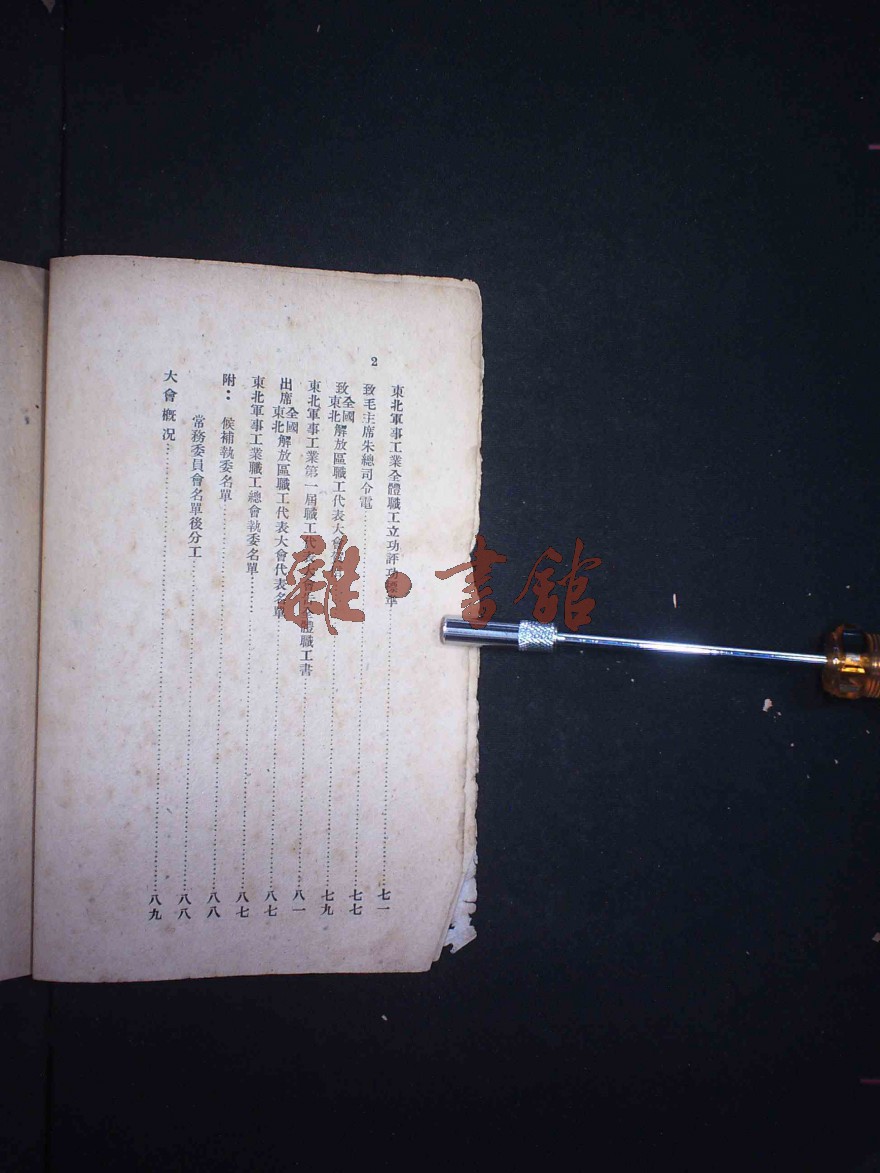 2
東北軍事工業全體職工立功評功標準……七一
致毛主席朱總司令電……七七
致全國東北解放區職工代表大會……七九
東北軍事工業第一屆職工代表大會告全體職工書……八一
出席全國東北解放區職工代表大會代表名單……八七
東北軍事工業職工總會執委名單……八七
附：候補執委名單……八八
常務委員會名單後分工……八八
大會概况……八九
雜·書館